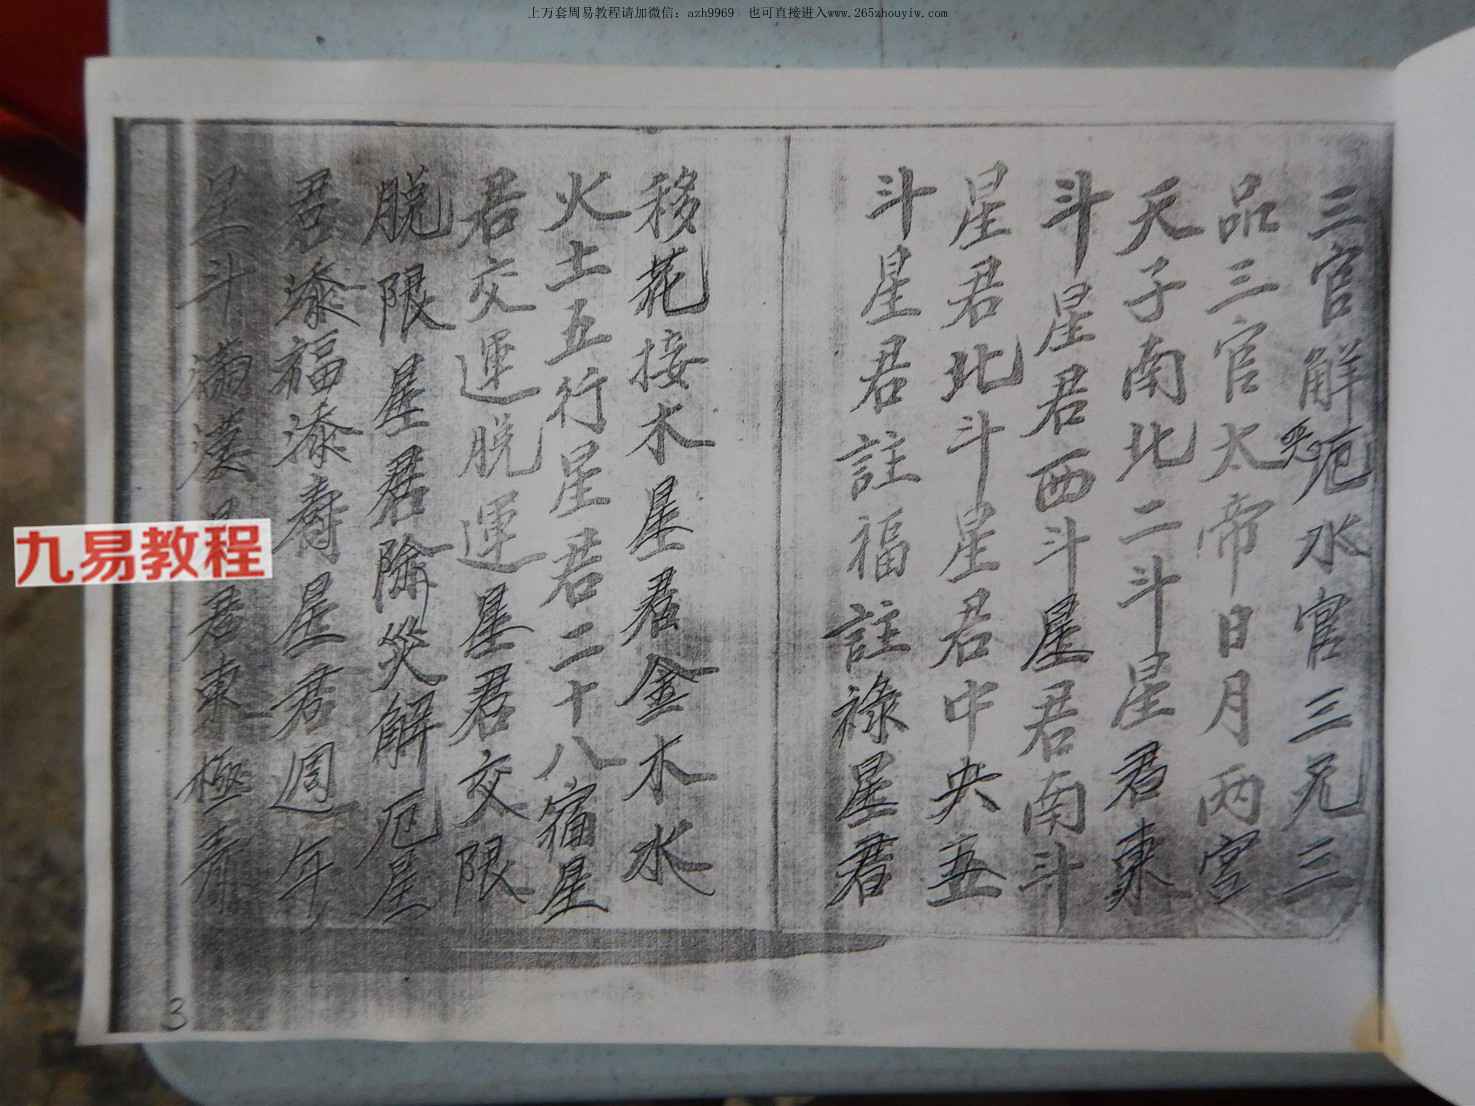 上万套周易教程请加微信：azh9969 也可直接进入www.265zhouyiw.com
三官解厄水官三元三
品三官太帝日月两宮
天子南北二斗星君東
斗星君西斗星君南斗
星君北斗星君中央五
斗星君註福註祿星君
移花接木星君金木水
火土五行星君二十八宿星
君交運脱運星君交限
脱限星君除災解厄星
君添福添壽星君週年
星斗滿漢君東極青
九易教程
3